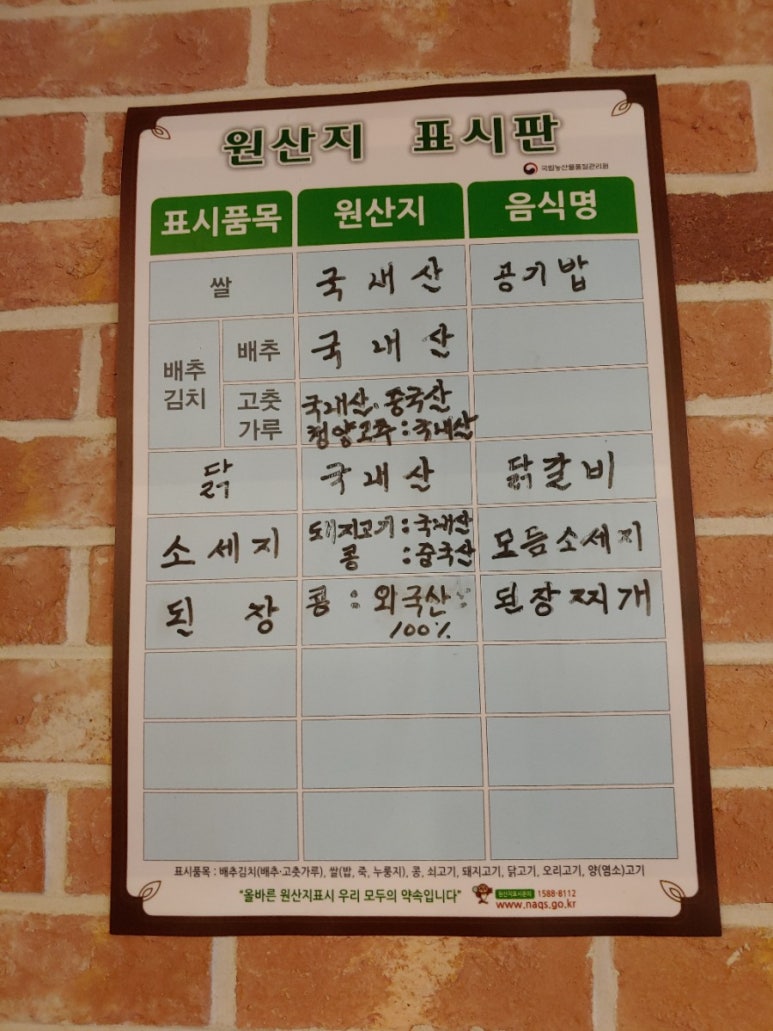 원산지 표시판
국립농산물품질관리원
표시품목 원산지 음식명
쌀 국내산 공기밥
배추김치 배추 국내산
고춧가루 국내산, 중국산
청양고추 : 국내산
닭 국내산 닭갈비
소세지 돼지고기 : 국내산 모듬소세지
콩 : 중국산
된장 콩 : 외국산 : 된장찌개
100%
표시품목 : 배추김치(배추·고춧가루), 쌀(밥, 죽, 누룽지), 콩, 쇠고기, 돼지고기, 닭고기, 오리고기, 양(염소)고기
"올바른 원산지표시 우리 모두의 약속입니다" 원산지표시문의 1588-8112
www.naqs.go.kr